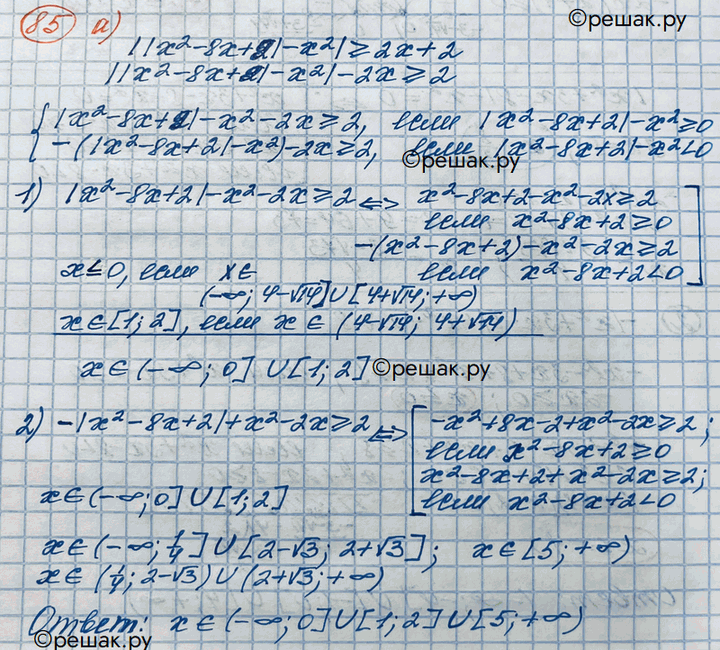 ©решак.ру
85 а)
||x²-8x+2|-x²| ≥ 2x+2
||x²-8x+2|-x²|-2x ≥ 2
{ |x²-8x+2|-x²-2x ≥ 2, если |x²-8x+2|-x² ≥ 0
-(|x²-8x+2|-x²)-2x ≥ 2, если |x²-8x+2|-x² < 0
©решак.ру
1) |x²-8x+2|-x²-2x ≥ 2 <=> x²-8x+2-x²-2x ≥ 2
если x²-8x+2 ≥ 0
-(x²-8x+2)-x²-2x ≥ 2
если x²-8x+2 < 0 ]
x ≤ 0, если x ∈
(-∞; 4-√14] ∪ [4+√14; +∞)
x ∈ [1; 2], если x ∈ (4-√14; 4+√14)
x ∈ (-∞; 0] ∪ [1; 2] ©решак.ру
2) -|x²-8x+2|+x²-2x ≥ 2 <=> [ -x²+8x-2+x²-2x ≥ 2;
если x²-8x+2 ≥ 0
x²-8x+2+x²-2x ≥ 2;
если x²-8x+2 < 0
x ∈ (-∞; 0] ∪ [1; 2]
x ∈ (-∞; 1/4] ∪ [2-√3; 2+√3]; x ∈ [5; +∞)
x ∈ (1/4; 2-√3) ∪ (2+√3; +∞)
Ответ: x ∈ (-∞; 0] ∪ [1; 2] ∪ [5; +∞)
©решак.ру